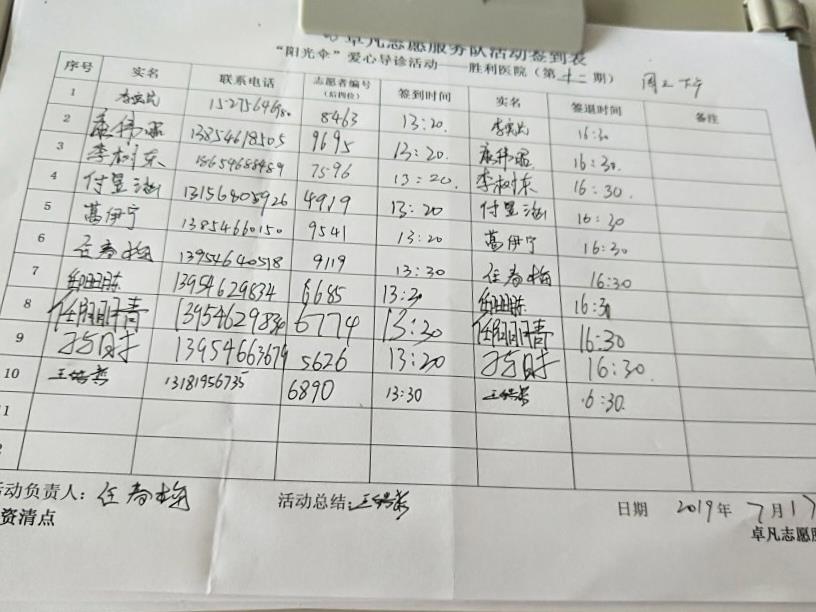 卓凡志愿服务队活动签到表
“阳光伞”爱心导诊活动——胜利医院（第十二期） 周三下午
序号 实名 联系电话 志愿者编号（后四位） 签到时间 实名 签退时间 备注
1 8463 13:20. 16:30
2 13854618505 9695 13:20. 16:30.
3 李树东 18654688489 7596 13:20. 李树东 16:30.
4 付昱涵 13156805926 4919 13:20 付昱涵 16:30
5 葛伊宁 13854660150 9541 13:20 葛伊宁 16:30
6 任春梅 13954640518 9119 13:30 任春梅 16:30
7 13954629834 6685 13:30 16:30
8 13954629830 6774 13:30 16:30
9 13954663679 5626 13:20 16:30
10 13181956735 6890 13:30 6:30.
活动负责人：任春梅 活动总结： 日期 2019年7月17
资清点 卓凡志愿服